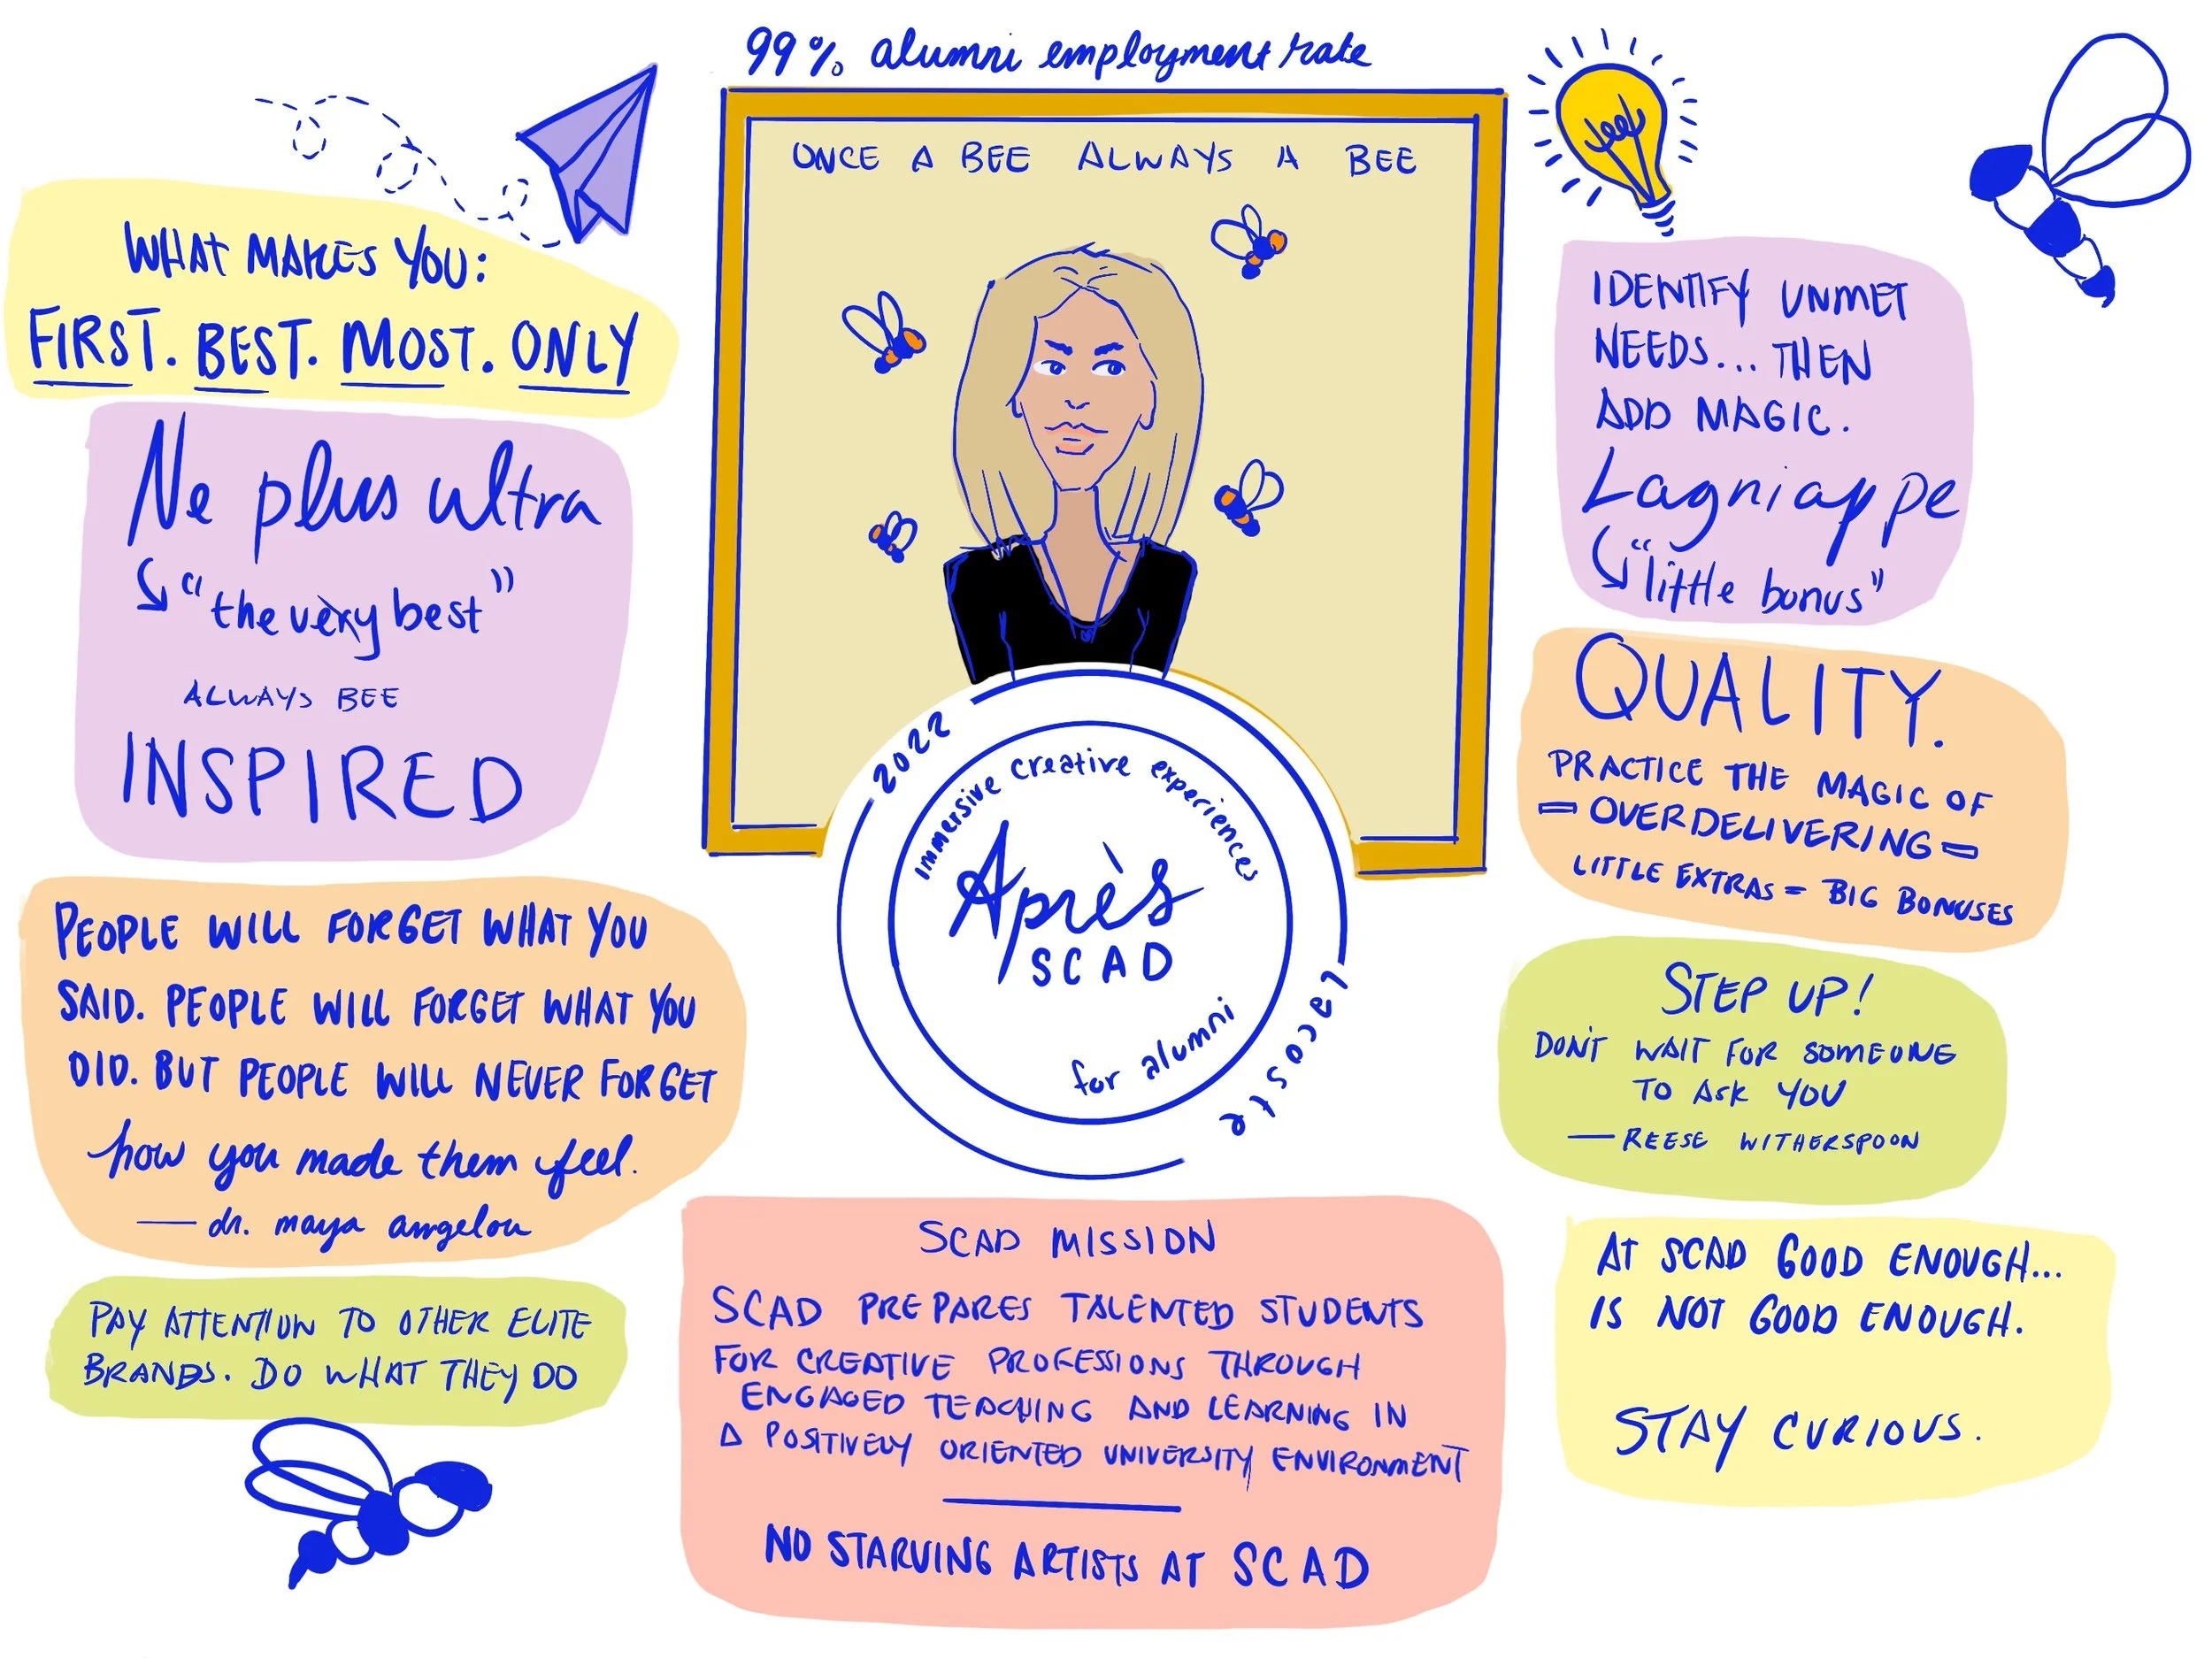 99% alumni employment rate
ONCE A BEE ALWAYS A BEE
WHAT MAKES YOU:
FIRST. BEST. MOST. ONLY
Ne plus ultra
"the very best"
ALWAYS BEE
INSPIRED
PEOPLE WILL FORGET WHAT YOU
SAID. PEOPLE WILL FORGET WHAT YOU
DID. BUT PEOPLE WILL NEVER FORGET
how you made them feel.
— dr. maya angelou
PAY ATTENTION TO OTHER ELITE
BRANDS. DO WHAT THEY DO
2022
Immersive creative experiences
Après
SCAD
for alumni
lacoste
SCAD MISSION
SCAD PREPARES TALENTED STUDENTS
FOR CREATIVE PROFESSIONS THROUGH
ENGAGED TEACHING AND LEARNING IN
A POSITIVELY ORIENTED UNIVERSITY ENVIRONMENT
NO STARVING ARTISTS AT SCAD
IDENTIFY UNMET
NEEDS... THEN
ADD MAGIC.
Lagniappe
"little bonus"
QUALITY.
PRACTICE THE MAGIC OF
= OVERDELIVERING =
LITTLE EXTRAS = BIG BONUSES
STEP UP!
DON'T WAIT FOR SOMEONE
TO ASK YOU
— REESE WITHERSPOON
AT SCAD GOOD ENOUGH...
IS NOT GOOD ENOUGH.
STAY CURIOUS.